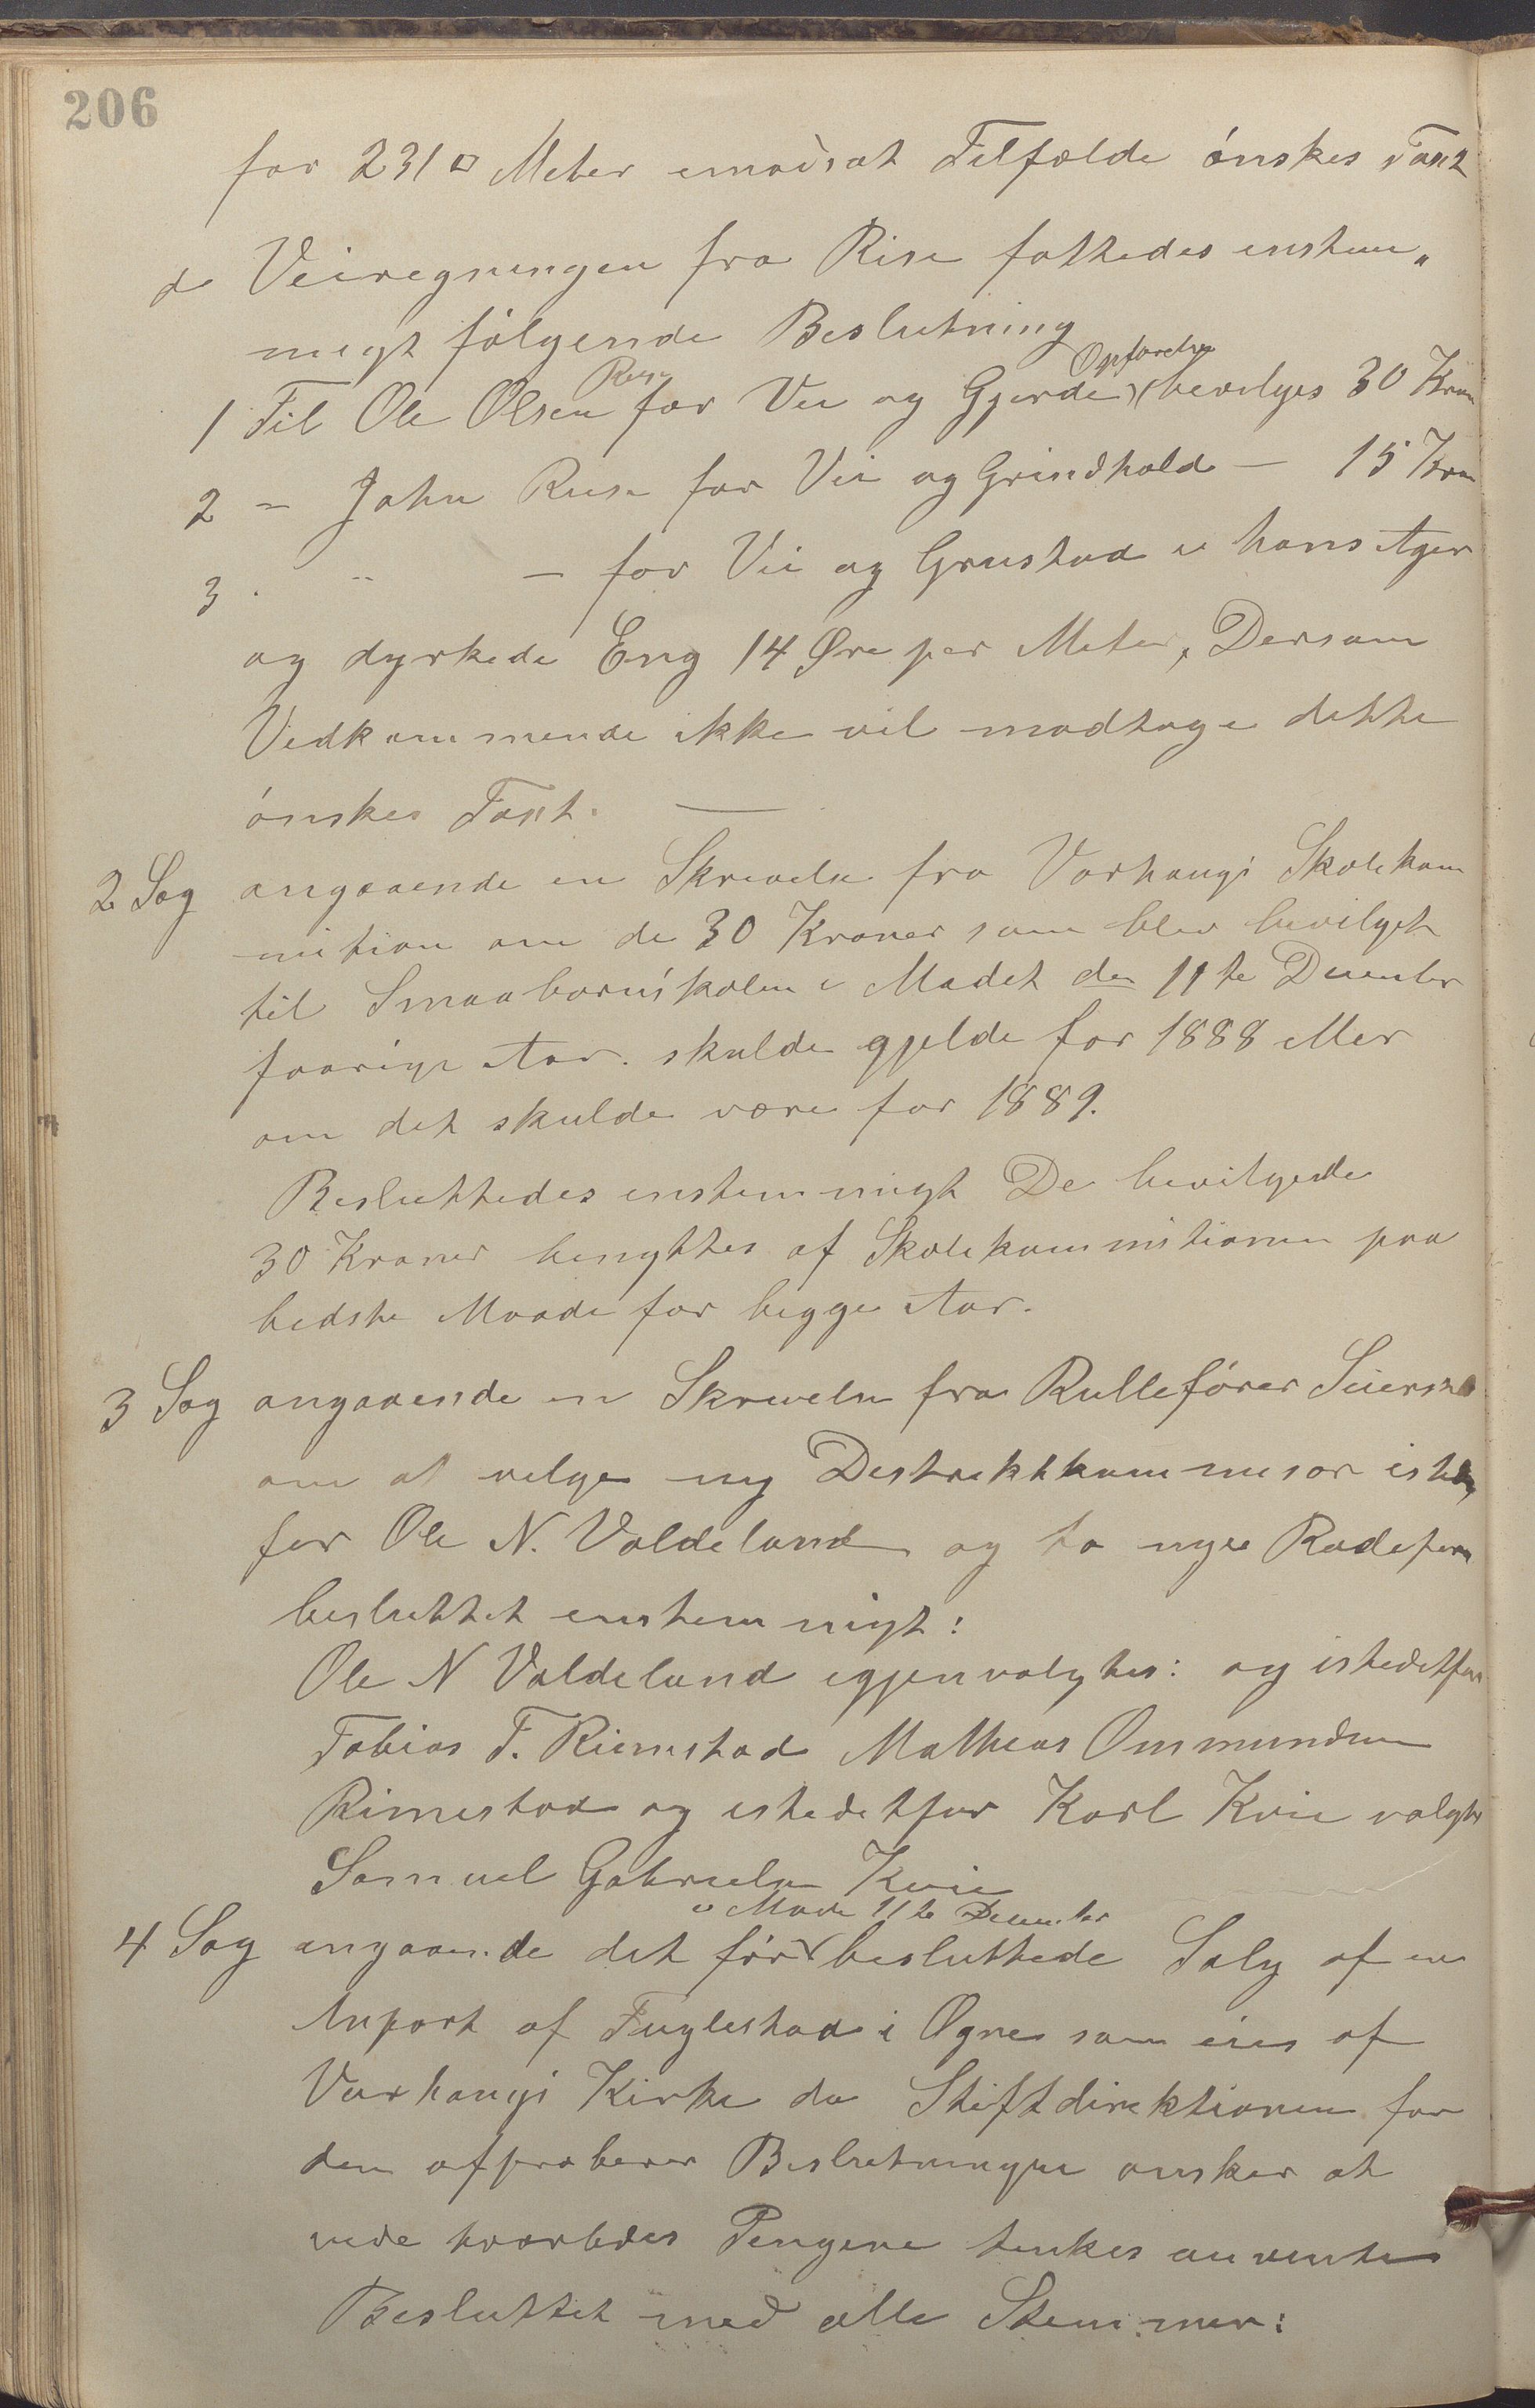 206
for 231 □ Meter imodsat Tilfælde ónskes Taxt
de Veiregningen fra Rise fattedes enstem„
migt fólgende Beslutning
1 Til Ole Olsen Riise for Vei og Gjerde Opførelse bevilges 30 Kron
2 – John Riise for Vei og Grindhold – 15 Kron
3 . " – for Vei og Grustad i hans Ager
og dyrkede Eng 14 Øre per Meter, Dersom
Vedkommende ikke vil modtage dette
ónskes Taxt. —
2 Sag angaaende en Skrivelse fra Varhaugs Skolekom
mition om de 30 Kroner som blev bevilget
til Smaabornskolen i Mødet den 11te December
forrige Aar. skulde gjelde for 1888 eller
om det skulde være for 1889.
Besluttedes enstemmigt De bevilgede
30 Kroner benyttes af Skolekommitionen paa
bedste Maade for begge Aar.
3 Sag angaaende en Skrivelse fra Rullefører
om at velge ny Destriktkommisær isted
for Ole N. Valdeland og to nye
besluttet enstemmigt:
Ole N Valdeland igjenvalgtes: og istedetfor
Tobias T. Riimestad Matheas Ommundsen
Rimestad og istedetfor Karl Kvie valgtes
Samuel Gabrielsen Kvie
i Møde 11te December
4 Sag angaaende det før besluttede Salg af en
Anpart af Fuglestad i Ogne som eies af
Varhaugs Kirke da Stiftdirektionen før
den afproberer Beslutningen ønsker at
vide hvorledes Pengene tenkes anvente
Besluttet med alle Stemmer: